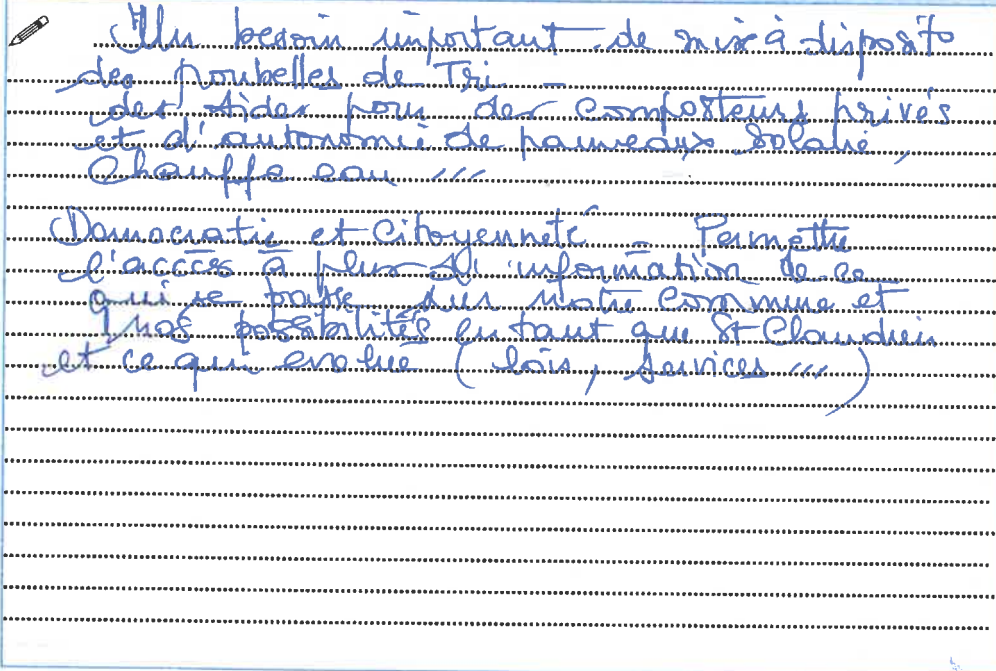 Un besoin important de mise à disposito
des poubelles de Tri -
des Aides pour des composteurs privés
et d'autonomie de panneaux Solaire,
Chauffe eau ...
Damocratie et Citoyenneté - Permettre
l'accès à plus d'information de ce
qui se passe sur notre Commune et
nos possibilités en tant que St Claudien
et ce qui evolue (lois, services ...)